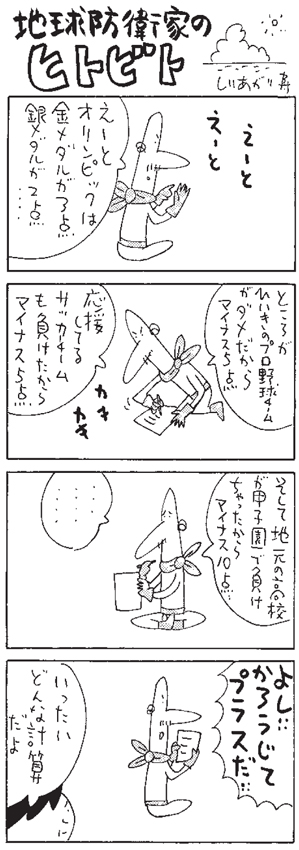 地球防衛家の
ヒトビト
しりあがり寿
えーと
えーと
えーと
オリンピックは
金メダルが3点
銀メダルが2点
‥‥
ところが
ひいきのプロ野球チーム
がダメだから
マイナス5点
応援
してる
サッカーチーム
も負けたから
マイナス5点
カキ
カキ
そして地元の高校
が甲子園で負け
ちゃったから
マイナス10点…
よし…
かろうじて
プラスだ…
いったい
どんな計算
だよ